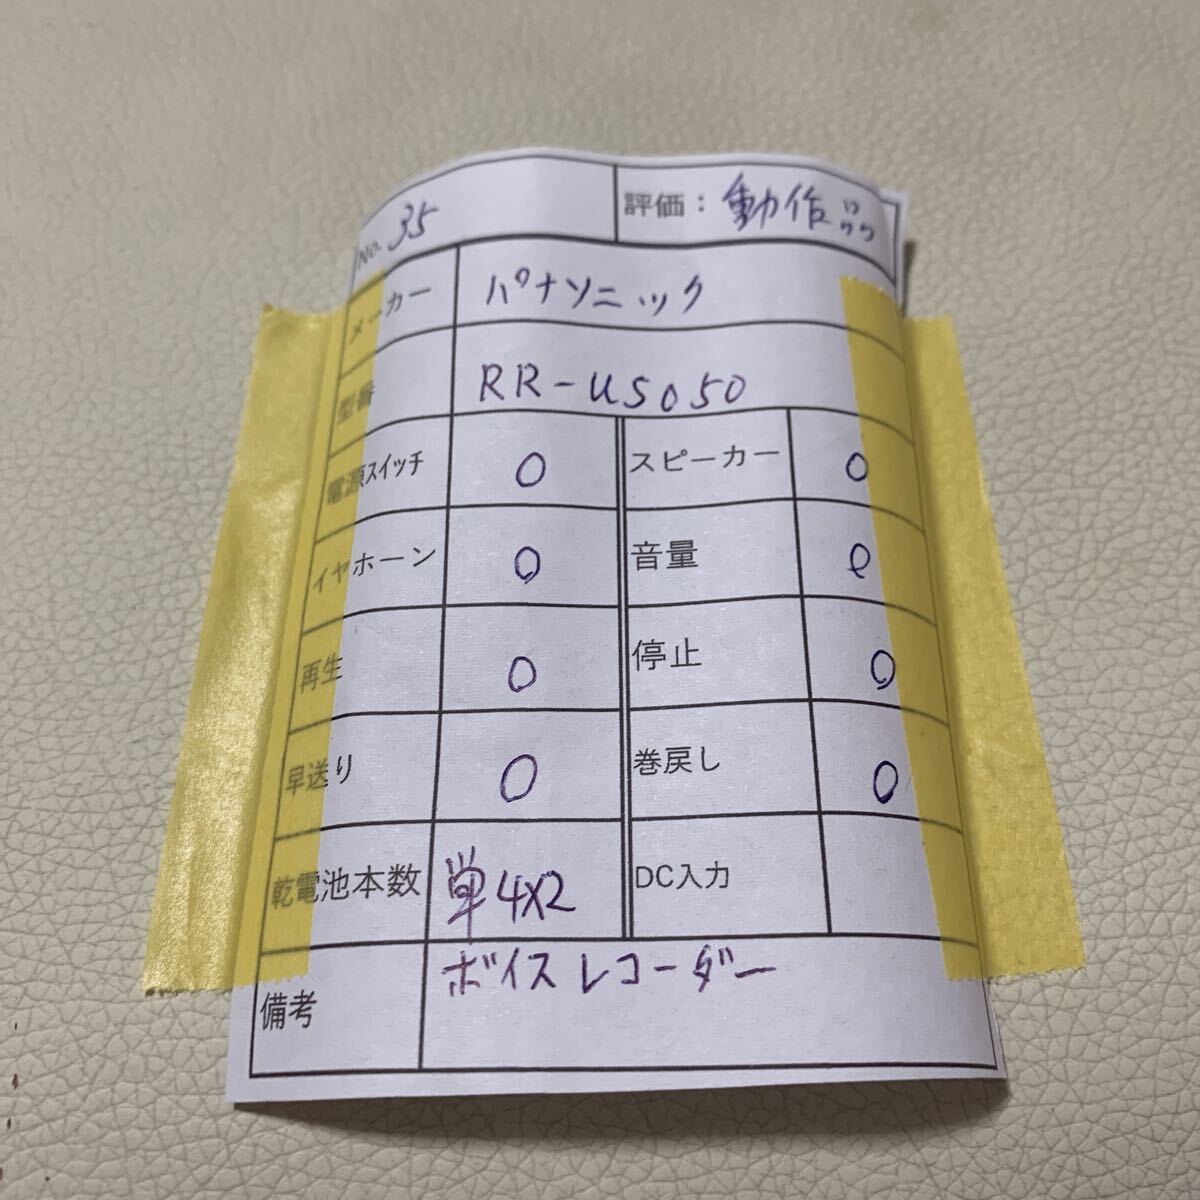 No. 35 評価：動作品
メーカー パナソニック
型番 RR-US050
電源スイッチ ○ スピーカー ○
イヤホーン ○ 音量 ○
再生 ○ 停止 ○
早送り ○ 巻戻し ○
乾電池本数 単4×2 DC入力
備考 ボイスレコーダー